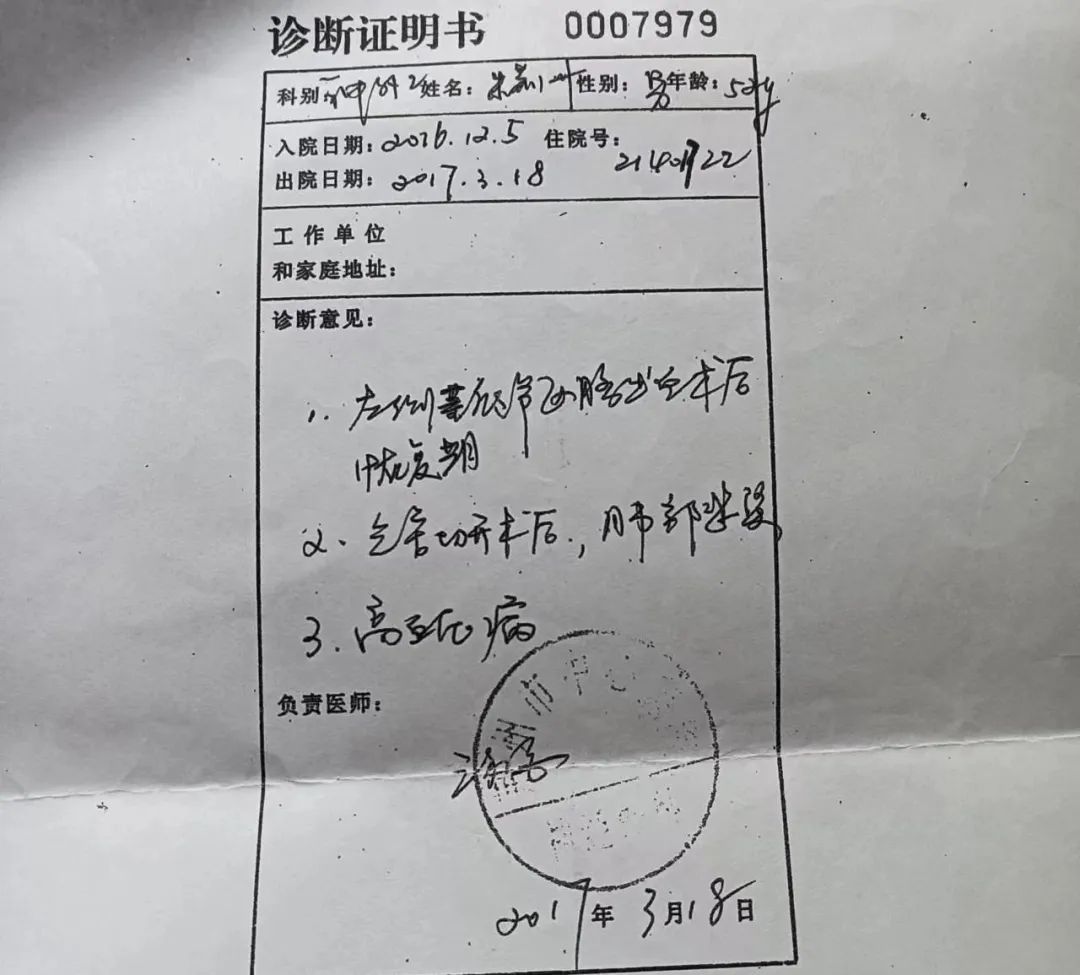 诊断证明书 0007979
科别 姓名: 朱 性别: 男 年龄: 52y
入院日期: 2016.12.5 住院号:
出院日期: 2017.3.18 21401722
工作单位
和家庭地址:
诊断意见:
1. 左侧基底节区脑出血术后
恢复期
2. 气管切开术后, 肺部感染
3. 高血压病
负责医师:
州市中心
2017年3月18日